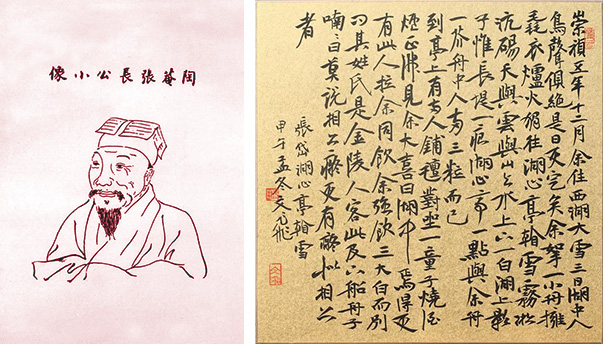 陶菴張長公小像
崇禎五年十二月余住西湖大雪三日湖中人
鳥聲俱絶是日更定矣余拏一小舟擁
毳衣爐火獨往湖心亭看雪霧凇
沆碭天與雲與山與水上下一白湖上影
子惟長堤一痕湖心亭一點與余舟
一芥舟中人兩三粒而已
到亭上有兩人鋪氈對坐一童子燒酒
爐正沸見余大喜曰湖中焉得更
有此人拉余同飲余強飲三大白而別
問其姓氏是金陵人客此及下船舟子
喃喃曰莫説相公癡更有癡似相公
者
張岱湖心亭看雪
甲午孟冬